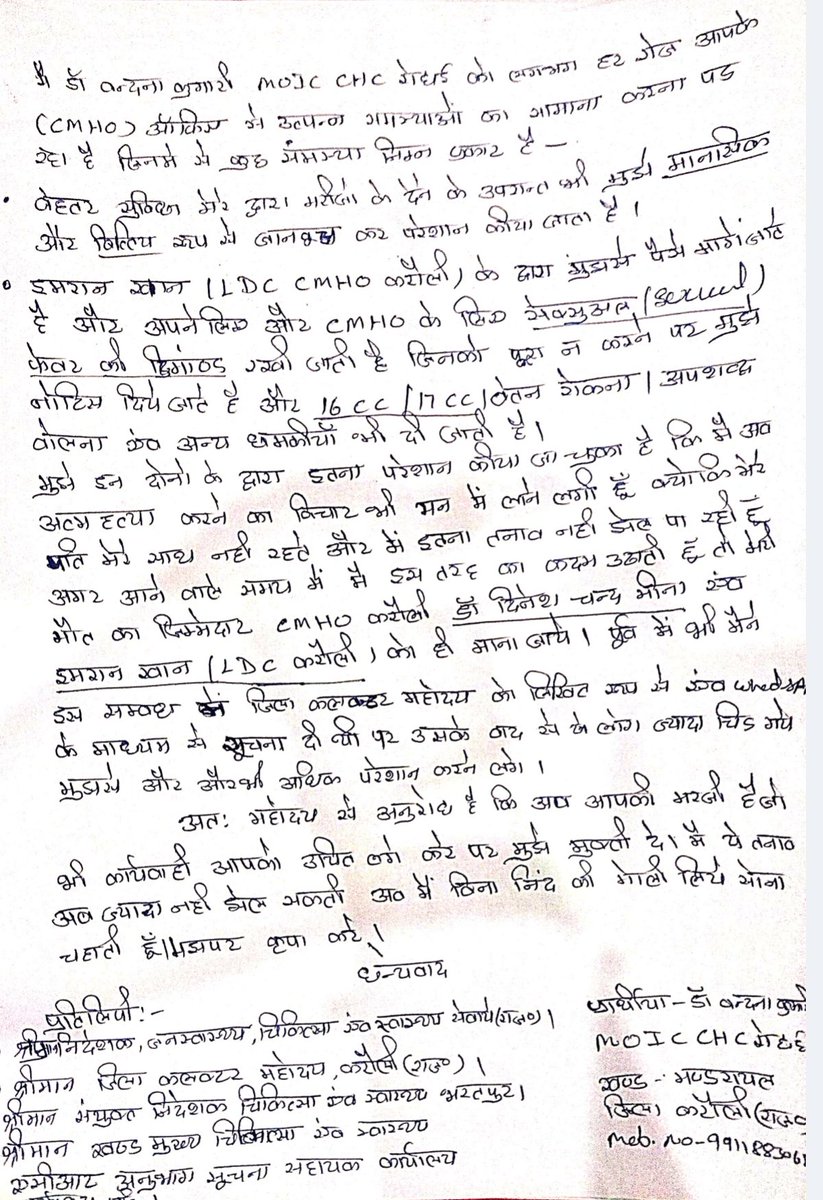 मै डॉ वन्दना कुमारी MOIC CHC को लगभग हर रोज आपके
(CMHO) ऑफिस से उत्पन्न समस्याओं का सामाना करना पड
रहा है जिनमे से कुछ संमस्या निम्न प्रकार है –
• बेहतर सुविधा मेरे द्वारा मरीजो के देने के उपरान्त भी मुझे मानसिक
और वित्तिय रूप से जानबुझ कर परेशान कीया जाता है।
• इमरान खान (LDC CMHO करौली) के द्वारा मुझसे पैसे मागें जाते
है और अपने लिए और CMHO के लिए सेक्सुअल (Sexual)
फेवर की डिमांण्ड रखी जाती है जिनको पूरा न करने पर मुझे
नोटिस दिये जाते है और 16 CC / 17 CC / वेतन रोकना / अपशब्द
बोलना एंव अन्य धमकीयाँ भी दी जाती है।
मुझे इन दोनो के द्वारा इतना परेशान कीया जा चुका है कि मै अब
आत्म हत्या करने का विचार भी मन में लाने लगी हूँ क्योकि मेरे
पति मेरे साथ नही रहते और में इतना तनाव नही झेल पा रही हूँ
अगर आने वाले समय में मै इस तरह का कदम उठाती हूँ तो मेरी
मौत का जिम्मेदार CMHO करौली डॉ दिनेश चन्द मीना एंव
इमरान खान (LDC करौली) को ही माना जाये। पूर्व में भी मैने
इस सम्बध में जिला कलक्टर महोदय को लिखित रूप से एंव
के माध्यम से सूचना दी थी पर उसके बाद से ये लोग ज्यादा चिड गये
मुझसे और औरभी अधिक परेशान करने लगे।
अतः महोदय से अनुरोध है कि अब आपकी मरजी है जो
भी कार्यवाही आपको उचित लगे करे पर मुझे मुक्ती दे। मै ये तनाव
अब ज्यादा नही झेल सकती अब में बिना निंद की गोली लिये सोना
चहाती हूँ। मुझपर कृपा करे।
धन्यवाद
प्रतिलिपी:-
श्रीमान निदेशक, जनस्वास्थ्य, चिकित्सा एंव स्वास्थ्य सेवाये (राज०)।
श्रीमान जिला कलक्टर महोदय, करौली (राज०)।
श्रीमान संयुक्त निदेशक चिकित्सा एंव स्वास्थ्य भरतपुर।
श्रीमान खण्ड मुख्य चिकित्सा एंव स्वास्थ्य
अनुभाग सूचना सहायक कार्यालय
प्रार्थीया - डॉ वन्दना
MOIC CHC
खण्ड - मण्डरायल
जिला करौली (राज०
Mob. No-991188306